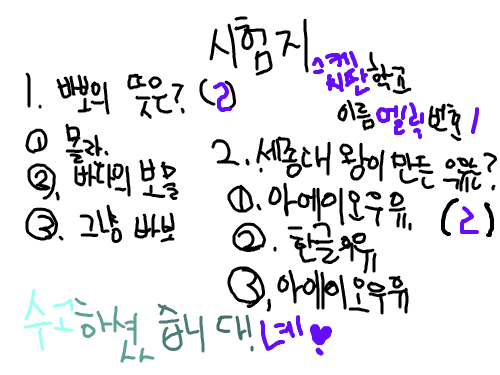 시험지
스케치판 학교
이름 엘릭 번호 1
1. 바보의 뜻은? (2)
① 몰라.
②, 바다의 보물
③. 그냥 바보
2. 세종대왕이 만든 우유는?
①. 아에이오우유. (2)
②. 한글우유
③, 아에이오우유
수고하셨습니대! 녜! ♥